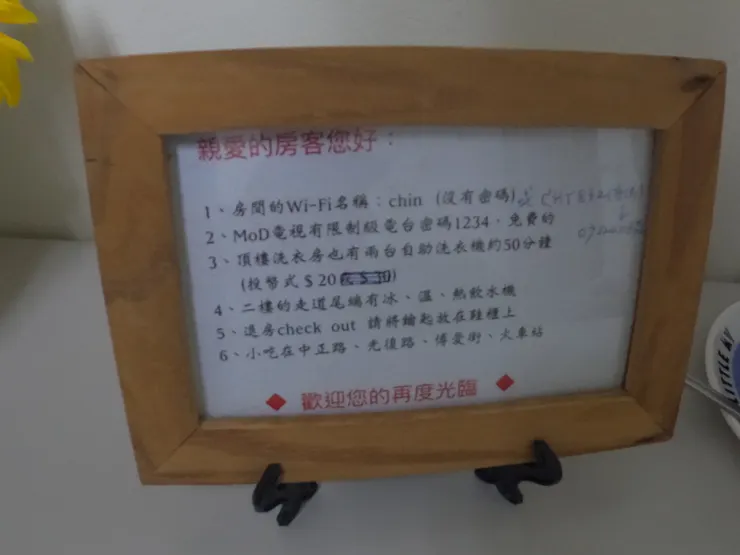 親愛的房客您好：
1、房間的Wi-Fi名稱：chin (沒有密碼) 或 CHT
2、MoD電視有限制級電台密碼1234，免費的
3、頂樓洗衣房也有兩台自助洗衣機約50分鐘
(投幣式$20)
4、二樓的走道尾端有冰、溫、熱飲水機
5、退房check out 請將鑰匙放在鞋櫃上
6、小吃在中正路、光復路、博愛街、火車站
◆ 歡迎您的再度光臨 ◆
LITTLE MY